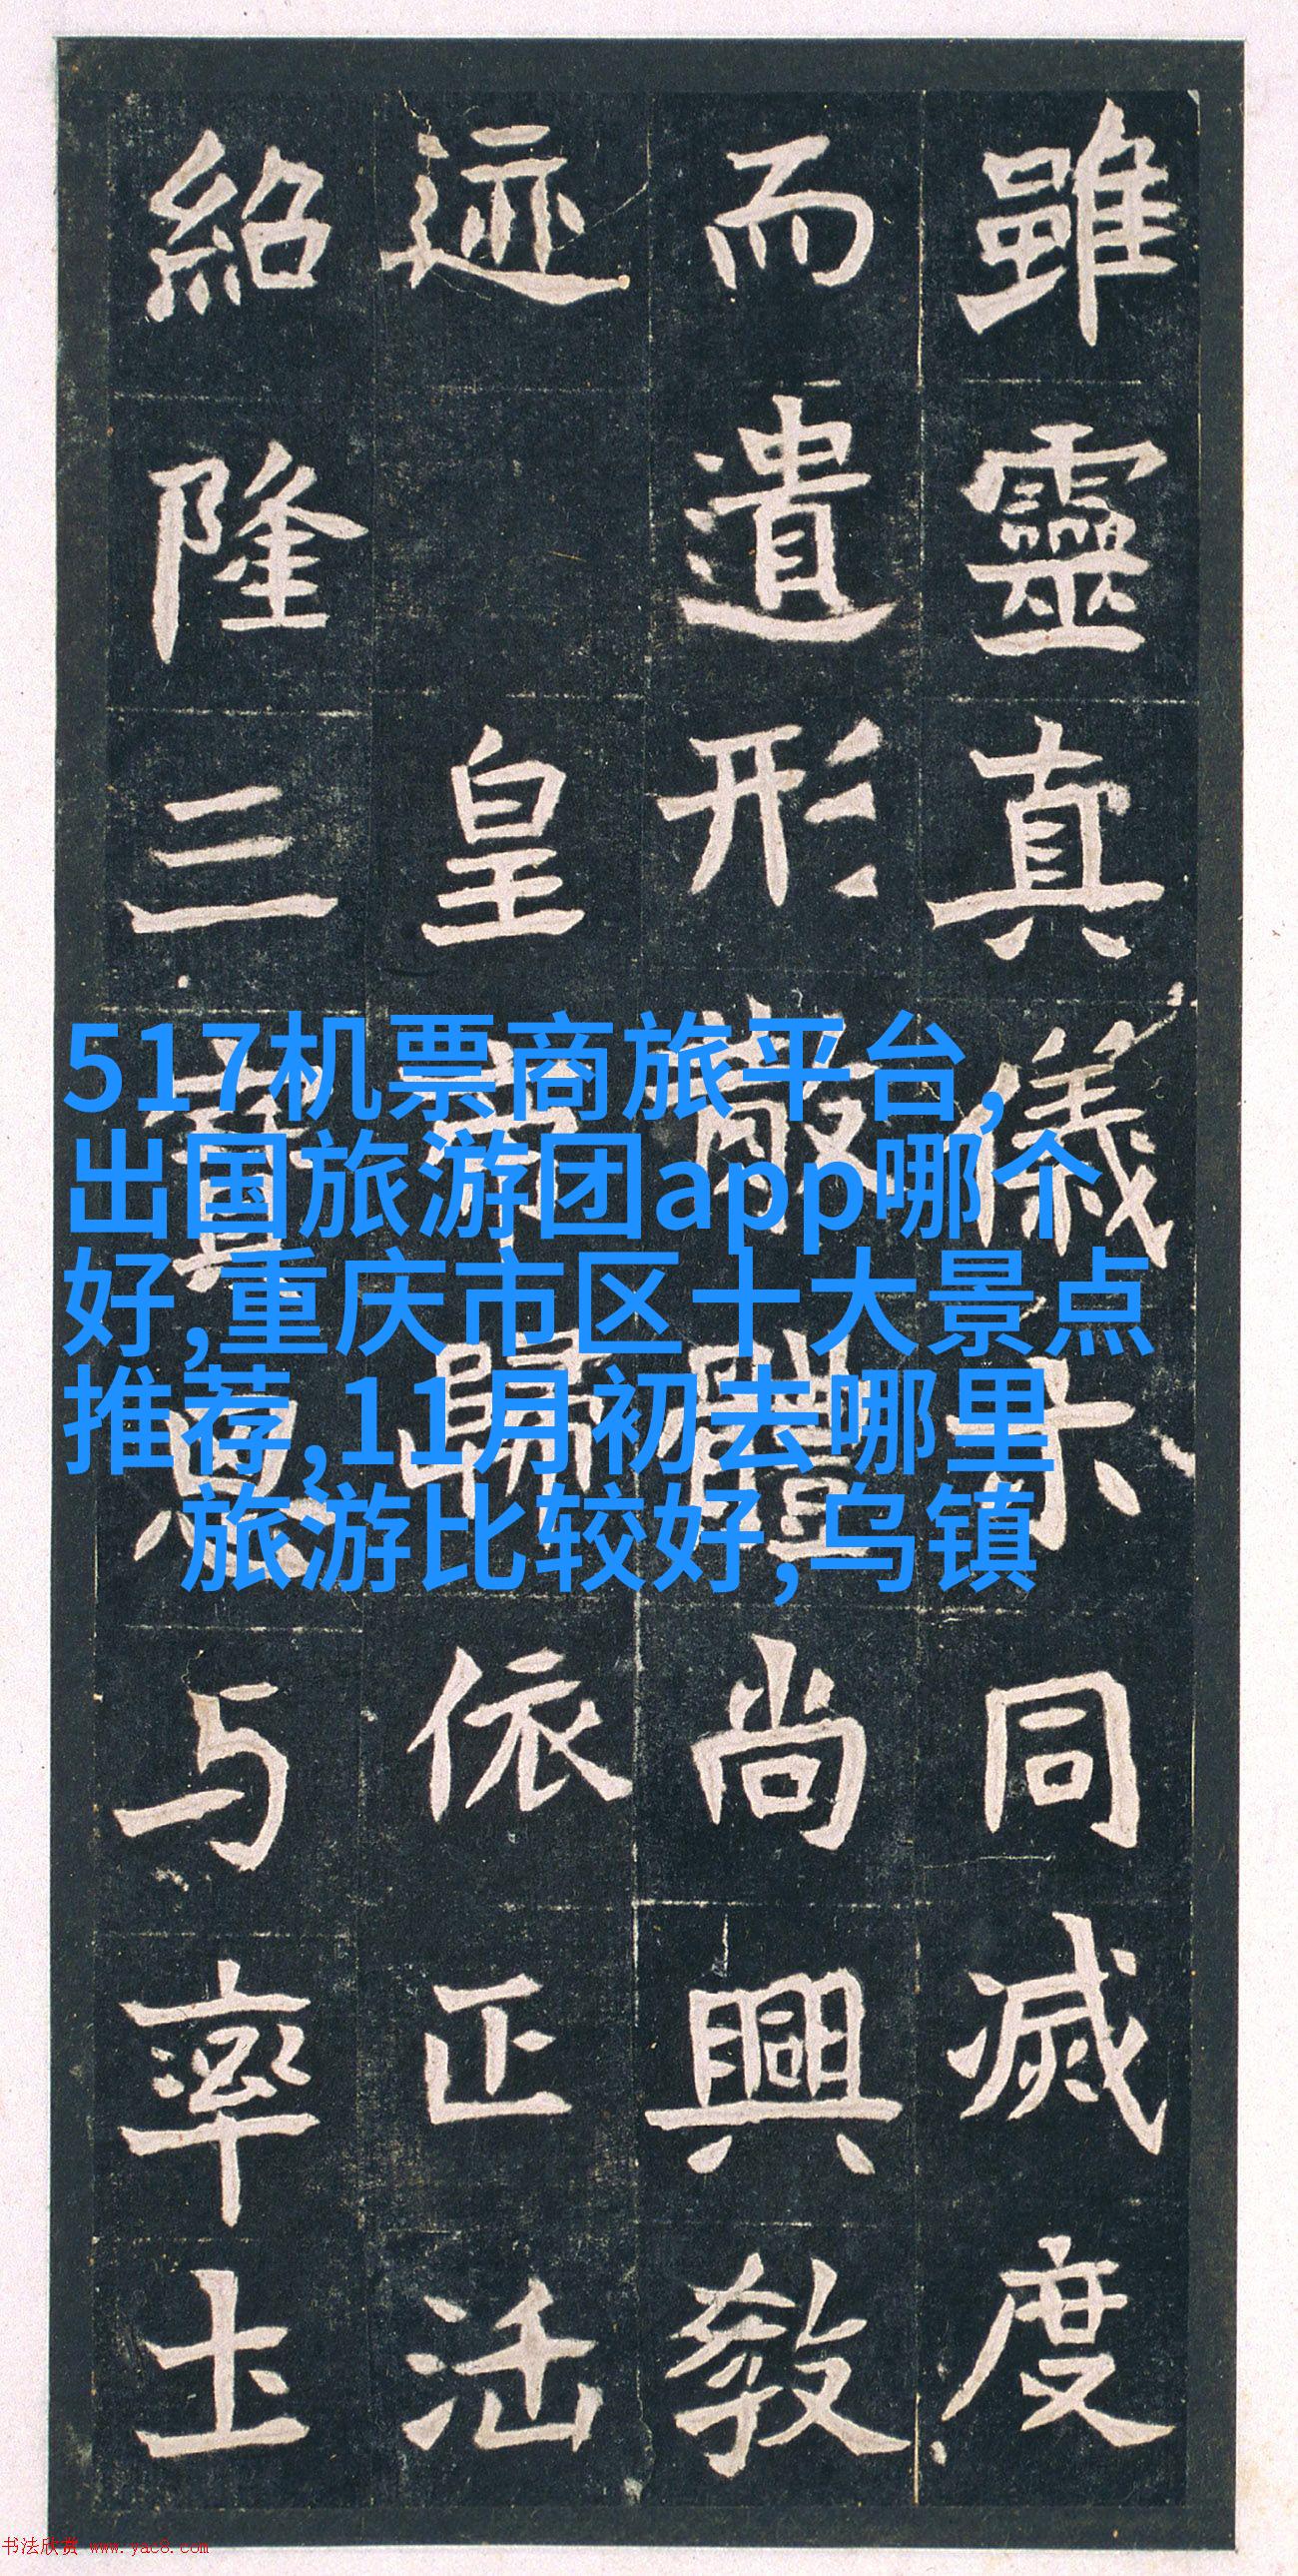 雖靈真儀示同滅度
而遺形散體尚興教
迹 皇帝歸依正法
紹隆三寶思与率土
517机票商旅平台,
出国旅游团app哪个
好,重庆市区十大景点
推荐,11月初去哪里
旅游比较好,乌镇
书法欣赏 www.yac8.com